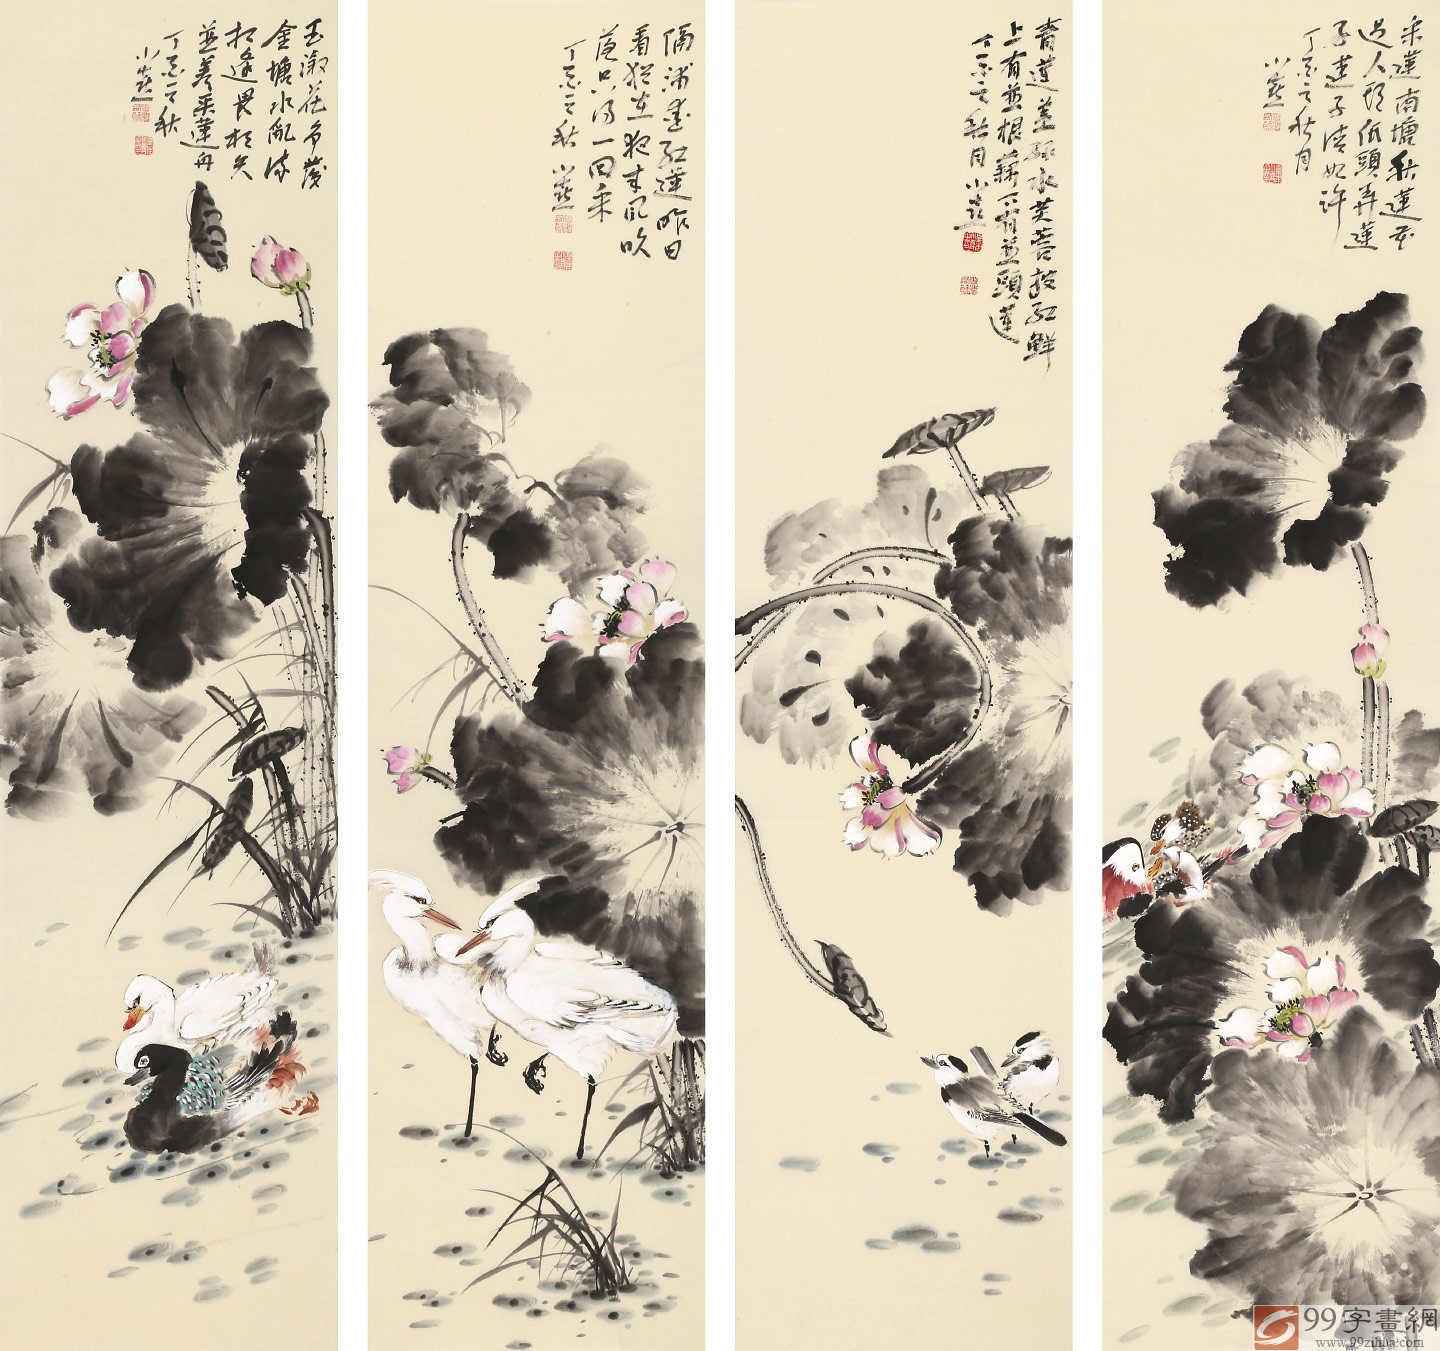 采蓮南塘秋蓮花
過人頭低頭弄蓮
子蓮子清如許
丁亥之秋月
小燕
青蓮蓋綠水芙蓉披紅鮮
上有並根藕下有並頭蓮
丁亥之秋月小燕
隔浦愛紅蓮昨日
看猶在夜來風吹
落只得一回采
丁亥之秋小燕
玉溆花爭發
金塘水亂流
相逢畏相失
並著采蓮舟
丁亥之秋
小燕
99字畫網
www.99zihua.com